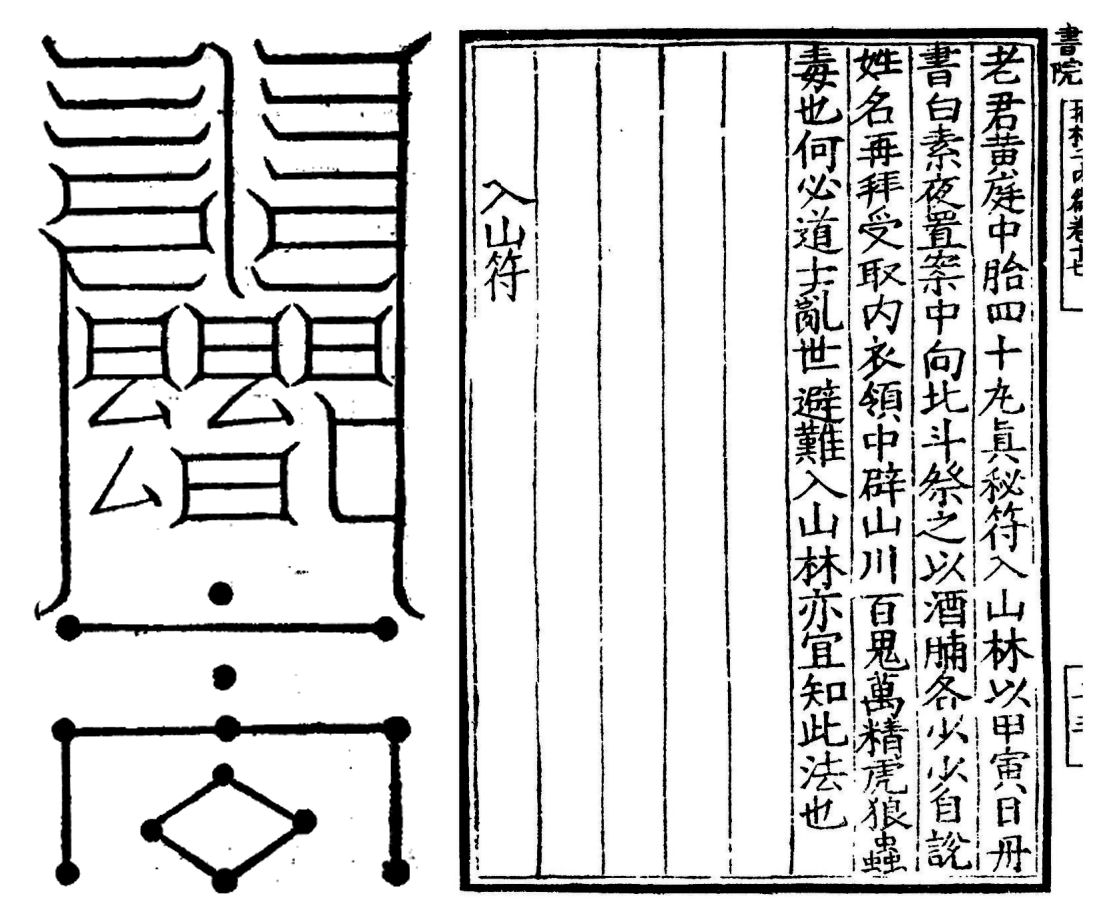 老君黄庭中胎四十九眞秘符入山林以甲寅日丹
書白素夜置案中向北斗祭之以酒脯各少少自說
姓名再拜受取内衣領中辟山川百鬼萬精虎狼蟲
毒也何必道士亂世避難入山林亦宜知此法也
入山符
書院
卷十七